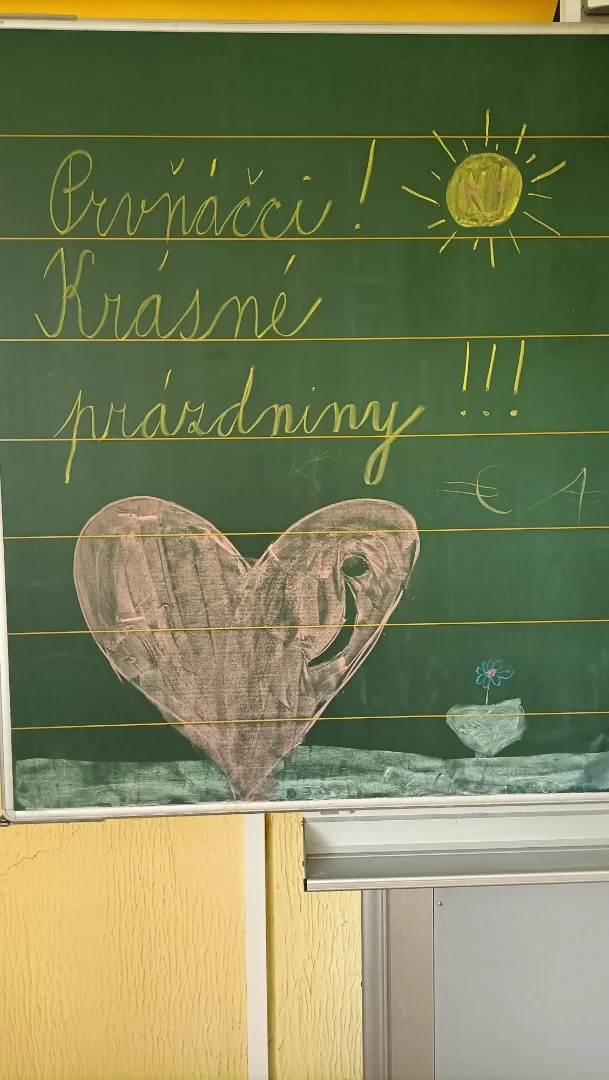 Prvňáčci!
Krásné
prázdniny !!!